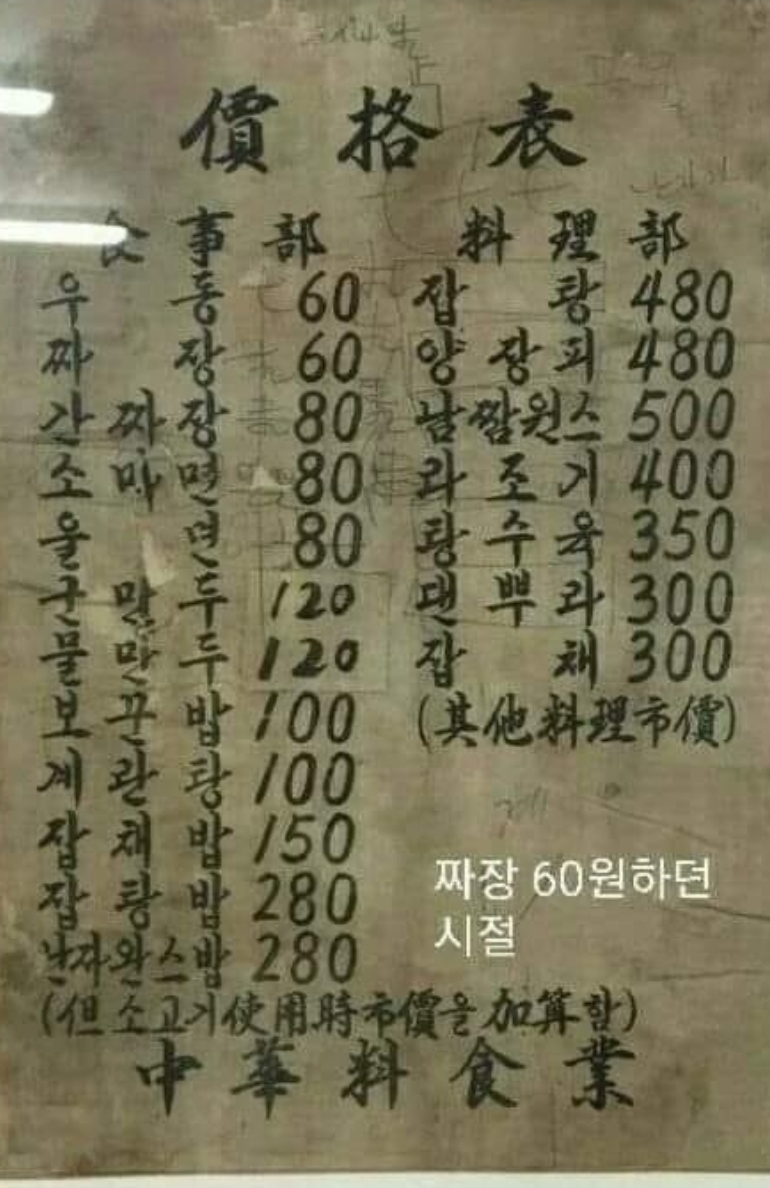 價格表
食事部
우동 60
짜장 60
간짜장 80
소마면 80
울면 80
군만두 120
물만두 120
보꾼밥 100
계란탕 100
잡채밥 150
잡탕밥 280
난자완스밥 280
料理部
잡탕 480
양장피 480
남짬원스 500
라조기 400
탕수육 350
댄뿌라 300
잡채 300
(其他料理市價)
짜장 60원하던
시절
(但 소고기使用時市價을 加算함)
中華料食業